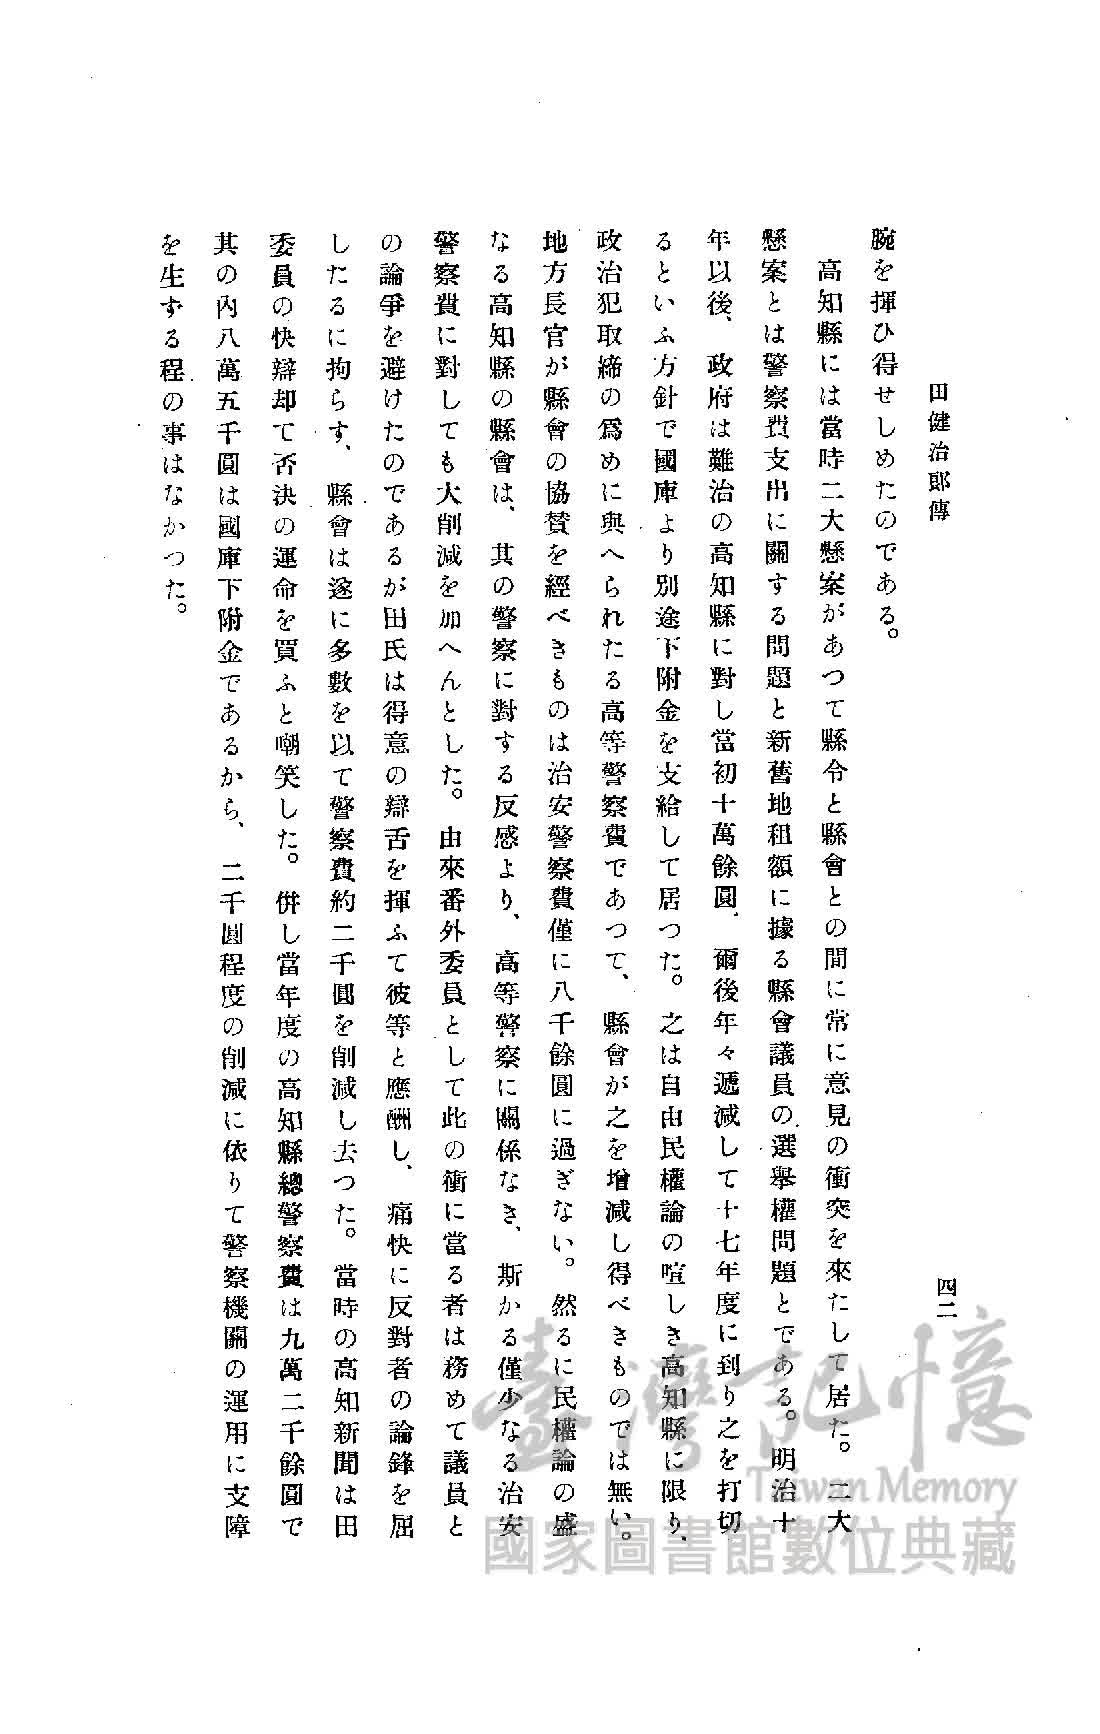 田健治郎傳
四二
腕を揮ひ得せしめたのである。
高知縣には當時二大懸案があつて縣令と縣會との間に常に意見の衝突を來たして居た。二大
懸案とは警察費支出に關する問題と新舊地租額に據る縣會議員の選擧權問題とである。明治十
年以後、政府は難治の高知縣に對し當初十萬餘圓、爾後年々遞減して十七年度に到り之を打切
るといふ方針で國庫より別途下附金を支給して居つた。之は自由民權論の喧しき高知縣に限り、
政治犯取締の爲めに與へられたる高等警察費であつて、縣會が之を增減し得べきものでは無い。
地方長官が縣會の協賛を經べきものは治安警察費僅に八千餘圓に過ぎない。然るに民權論の盛
なる高知縣の縣會は、其の警察に對する反感より、高等警察に關係なき、斯かる僅少なる治安
警察費に對しても大削減を加へんとした。由來番外委員として此の衝に當る者は務めて議員と
の論爭を避けたのであるが田氏は得意の辯舌を揮ふて彼等と應酬し、痛快に反對者の論鋒を屈
したるに拘らず、縣會は遂に多數を以て警察費約二千圓を削減し去つた。當時の高知新聞は田
委員の快辯却て否決の運命を買ふと嘲笑した。併し當年度の高知縣總警察費は九萬二千餘圓で
其の內八萬五千圓は國庫下附金であるから、二千圓程度の削減に依りて警察機關の運用に支障
を生ずる程の事はなかつた。
臺灣記憶
Taiwan Memory
國家圖書館數位典藏